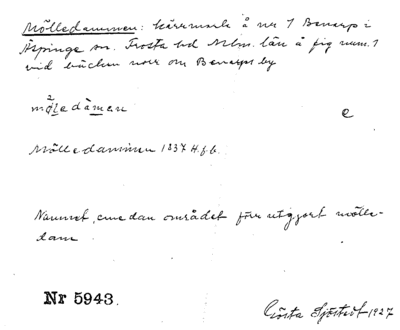 Mölledammen: kärrmark å nr 1 Benarp i
Äspinge sn. Frosta hd Mlm. län å fig num. 1
vid bäcken norr om Benarps by
2
møledåmen
e
Mölledammen 1837 H.f.b.
Namnet, eme dan området förr utgjort mölle-
dam
Nr 5943.
Gösta Sjöstedt 1927